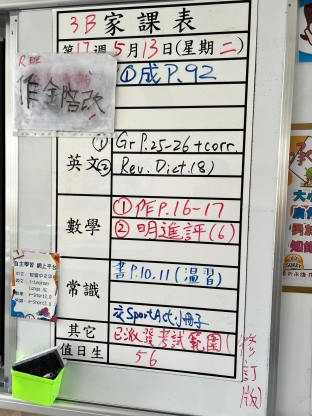 3B家課表
第17週5月13日(星期二)
R班
作金路改
①成P.92
英文
① Gr P.25-26 + corr.
② Rev. Dict.(8)
數學
① 作P.16-17
② 明進評(6)
常識
書P.10,11(溫習)
交SportAct小冊子
其它
已派發考試範圍(修訂版)
值日生
56
自主學習 網上平台